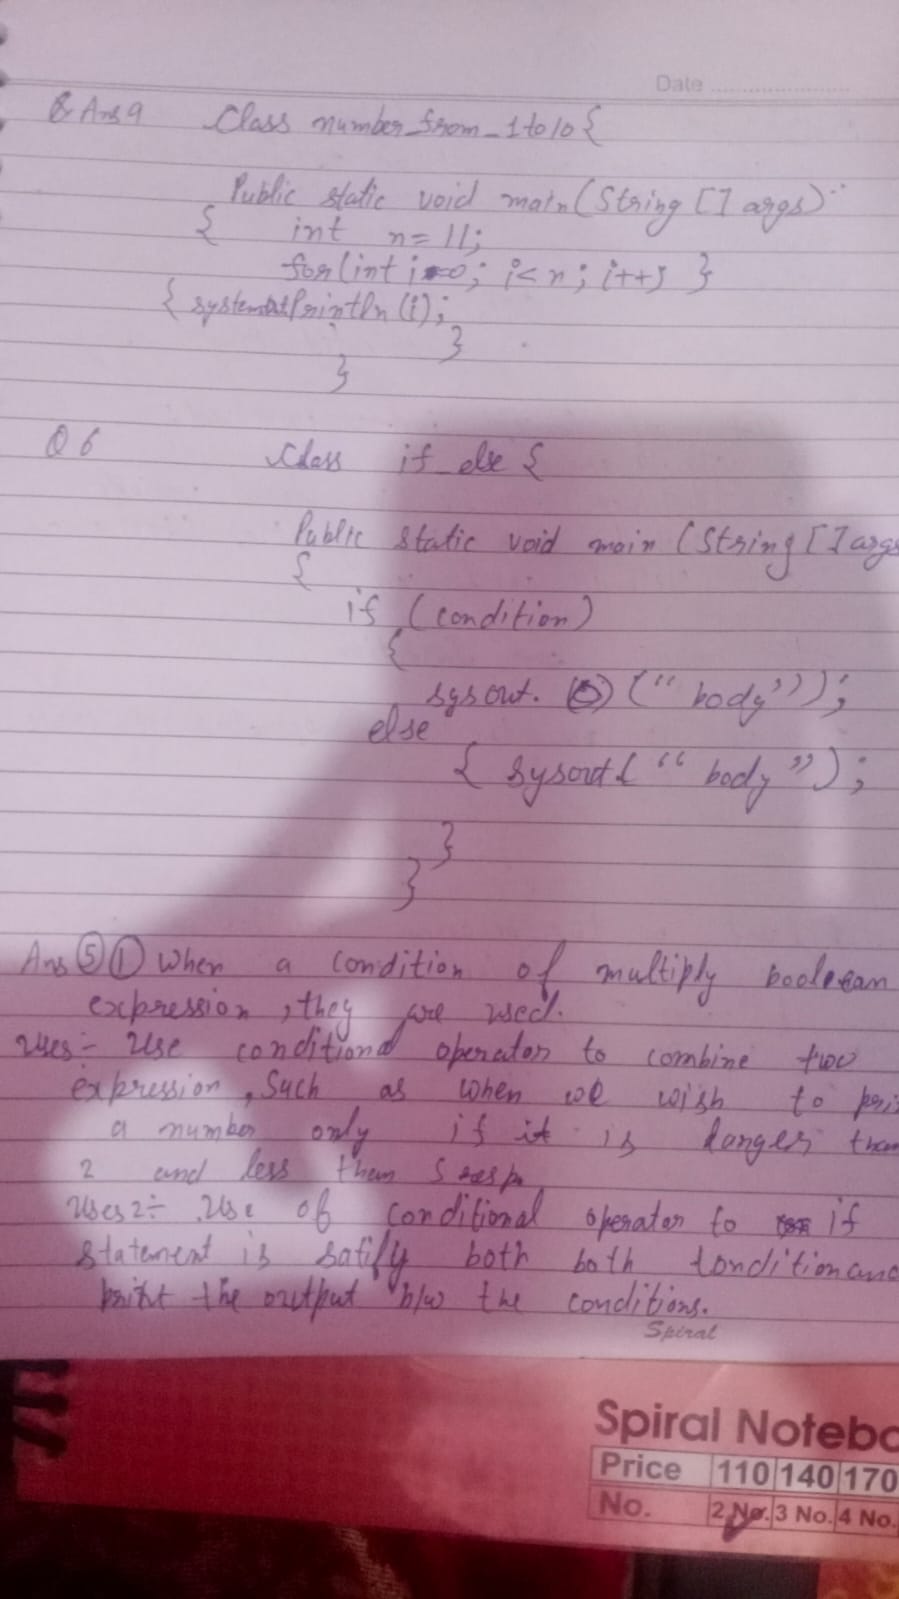 Date
Q Ans 9 Class number_from_1 to 10 {
Public static void main (String [] args)
{ int n = 11;
for (int i=0; i<n; i++) }
{ system.out.Println (i);
}
}
Q 6 Class if_else {
Public static void main (String [] args
{
if (condition)
{
sysout. ("body"));
else
{ sysout ("body");
}
}
Ans 5 1 When a condition of multiply boolean
expression, they are used.
Uses- Use conditional operator to combine two
expression, Such as when we wish to pri
a number only if it is langer than
2 and less then 5 resp.
Uses 2 ÷ Use of conditional operator to if
statement is satify both both condition and
print the output b/w the conditions.
Spiral
Spiral Notebo
Price 110 140 170
No. 2 No. 3 No. 4 No.